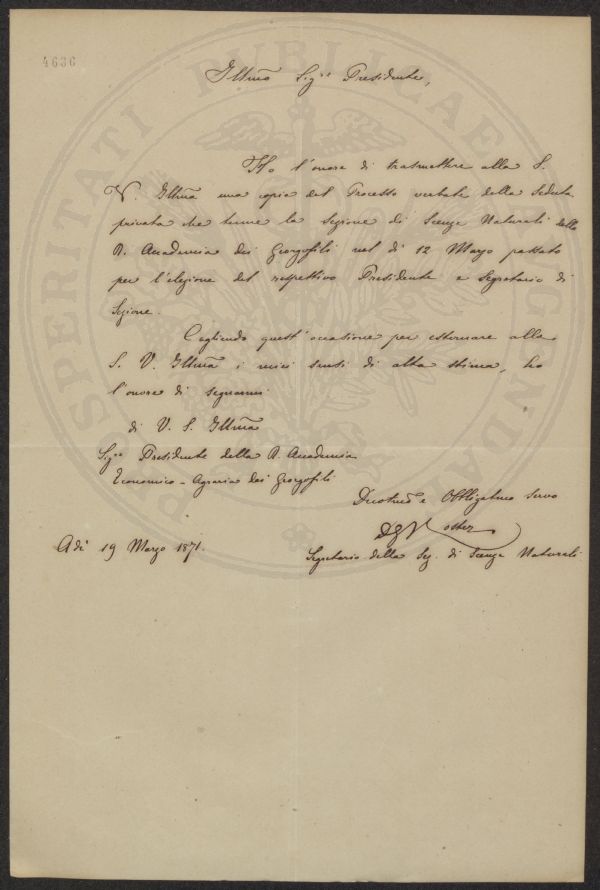 4636
Illmo Sigre Presidente,
Ho l'onore di trasmettere alla S.
V. Illma una copia del Processo verbale della Seduta
privata che tenne la Sezione di Scenze Naturali della
R. Accademia dei Georgofili nel dì 12 Marzo passato
per l'elezione del rispettivo Presidente e Segretario di
Sezione.
Cogliendo quest'occasione per esternare alla
S. V. Illma i miei sensi di alta stima, ho
l'onore di segnarmi
di V. S. Illma
Sigre Presidente della R. Accademia
Economico-Agraria dei Georgofili
Devotmo e Obbligatmo servo
Roster
Adì 19 Marzo 1871.
Segretario della Sez. di Scenze Naturali
PROSPERITATI PUBLICAE AUGENDAE